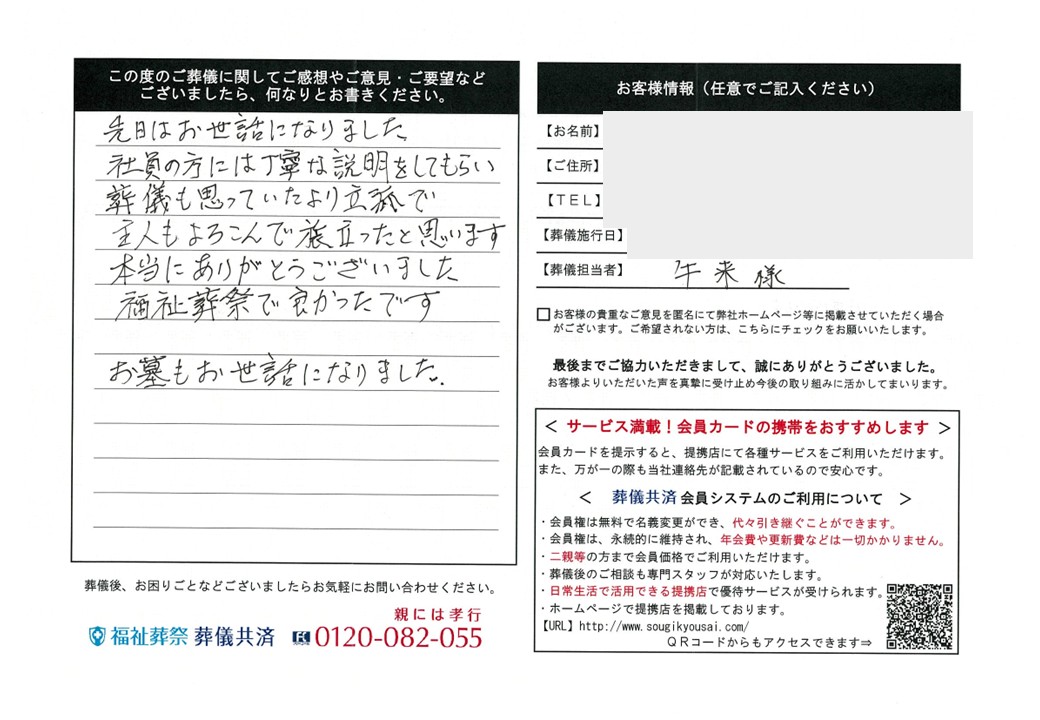 この度のご葬儀に関してご感想やご意見・ご要望など
ございましたら、何なりとお書きください。
先日はお世話になりました
社員の方には丁寧な説明をしてもらい
葬儀も思っていたより立派で
主人もよろこんで旅立ったと思います
本当にありがとうございました
福祉葬祭で良かったです
お墓もお世話になりました.
葬儀後、お困りごとなどございましたらお気軽にお問い合わせください。
親には孝行
福祉葬祭 葬儀共済 0120-082-055
お客様情報（任意でご記入ください）
【お名前】
【ご住所】
【ＴＥＬ】
【葬儀施行日】
【葬儀担当者】 牛来様
お客様の貴重なご意見を匿名にて弊社ホームページ等に掲載させていただく場合
がございます。ご希望されない方は、こちらにチェックをお願いいたします。
最後までご協力いただきまして、誠にありがとうございました。
お客様よりいただいた声を真摯に受け止め今後の取り組みに活かしてまいります。
＜ サービス満載！会員カードの携帯をおすすめします ＞
会員カードを提示すると、提携店にて各種サービスをご利用いただけます。
また、万が一の際も当社連絡先が記載されているので安心です。
＜ 葬儀共済 会員システムのご利用について ＞
・会員権は無料で名義変更ができ、代々引き継ぐことができます。
・会員権は、永続的に維持され、年会費や更新費などは一切かかりません。
・二親等の方まで会員価格でご利用いただけます。
・葬儀後のご相談も専門スタッフが対応いたします。
・日常生活で活用できる提携店で優待サービスが受けられます。
・ホームページで提携店を掲載しております。
【URL】http://www.sougikyousai.com/
ＱＲコードからもアクセスできます⇒